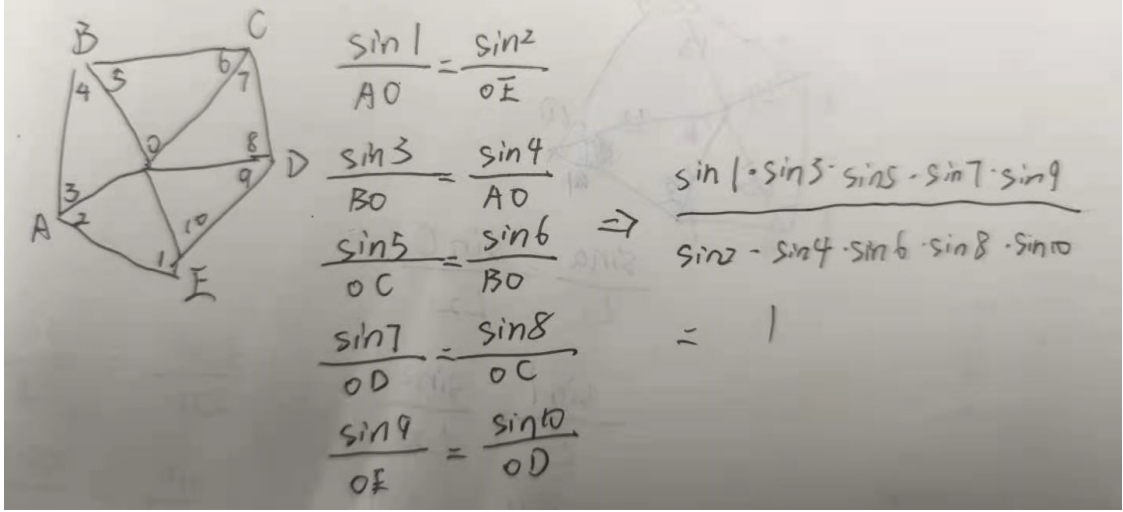 B
C
5
6
4
7
O
8
D
3
9
A
2
10
1
E
sin1/AO = sin2/OE
sin3/BO = sin4/AO
sin5/OC = sin6/BO
sin7/OD = sin8/OC
sin9/OE = sin10/OD
⇒ sin1·sin3·sin5·sin7·sin9 / sin2·sin4·sin6·sin8·sin10
= 1